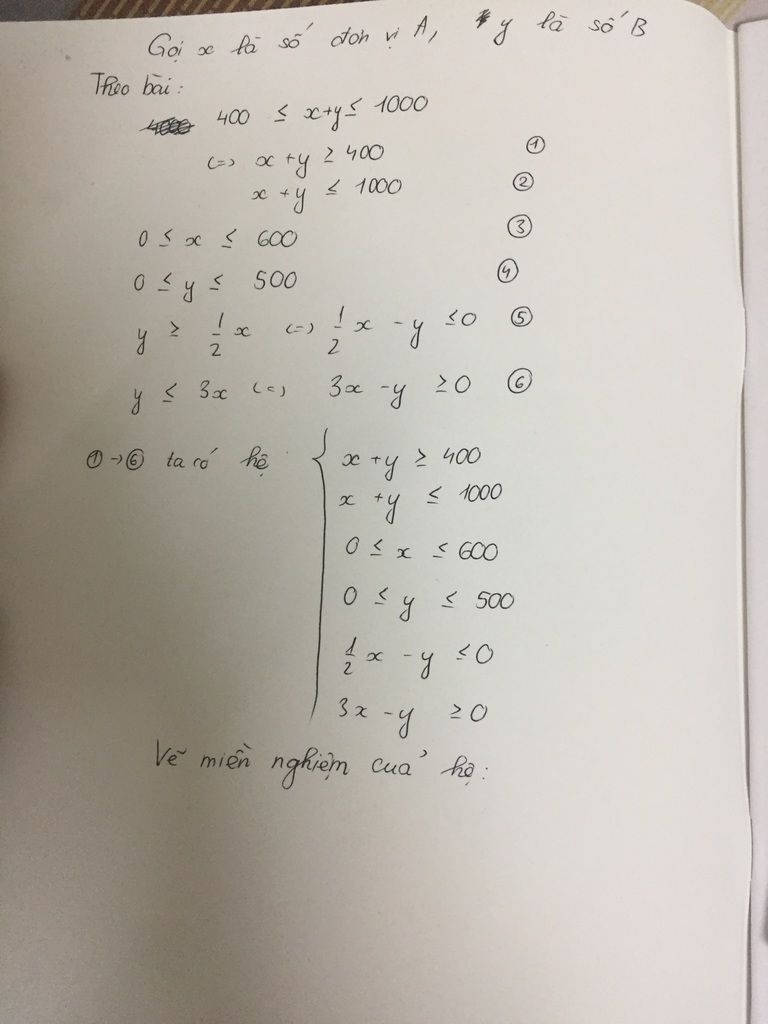 Gọi x là số đơn vị A, y là số B
Theo bài:
400 ≤ x+y ≤ 1000
(=) x + y ≥ 400 ①
x + y ≤ 1000 ②
0 ≤ x ≤ 600 ③
0 ≤ y ≤ 500 ④
y ≥ 1/2 x (=) 1/2 x - y ≤ 0 ⑤
y ≤ 3x (=) 3x - y ≥ 0 ⑥
① → ⑥ ta có hệ { x + y ≥ 400
x + y ≤ 1000
0 ≤ x ≤ 600
0 ≤ y ≤ 500
1/2 x - y ≤ 0
3x - y ≥ 0
Vẽ miền nghiệm của hệ: